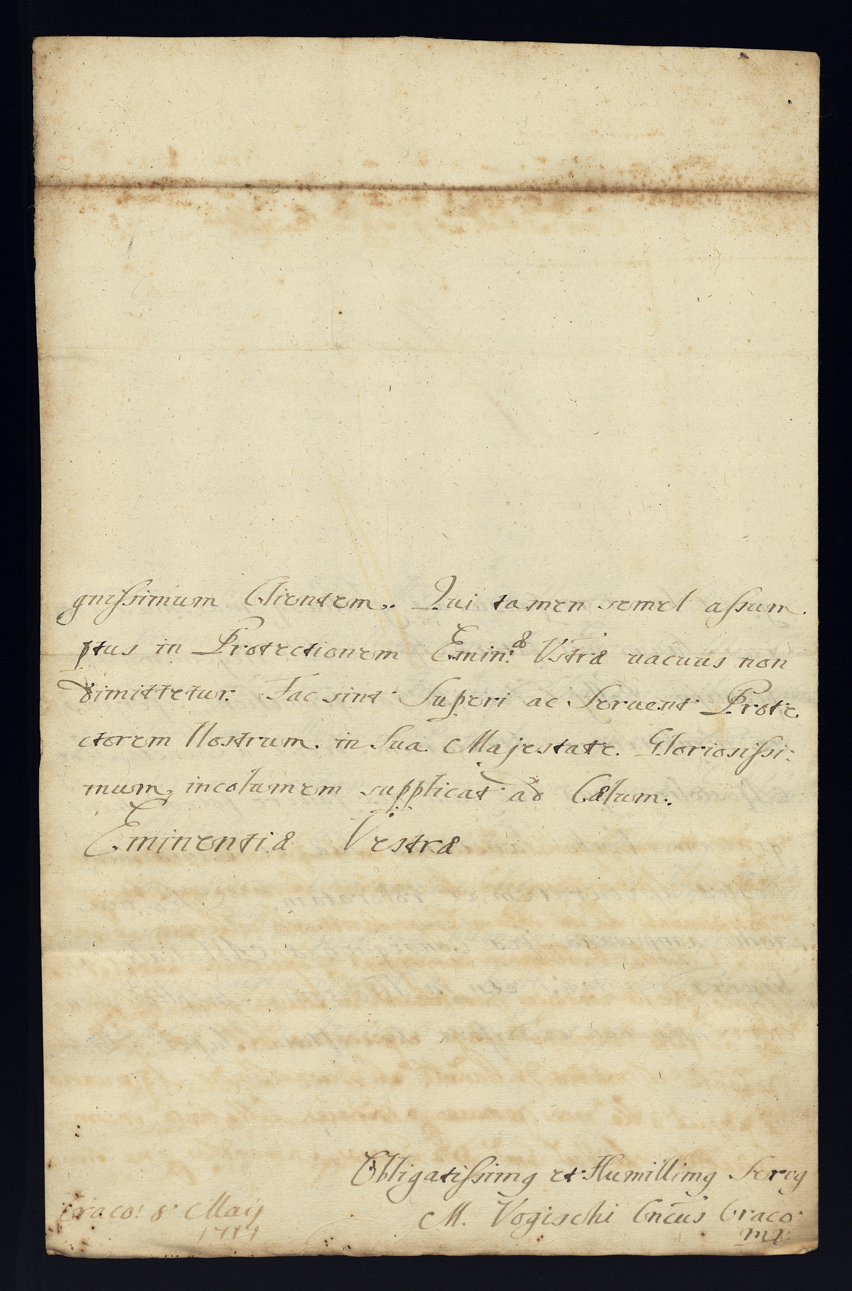 gnissimum Clientem. Qui tamen semel assum
ptus in Protectionem Emin: Vstræ vacuus non
dimittetur. Facsint Superi ac Servent Prote
ctorem Nostrum. in Sua Majestate. Gloriosissi:
mum, incolumem supplicat ad Cælum.
Eminentiæ Vestræ
Obligatissimg et Humillimg Servg
M. Vogischi Cracoi
Craco: 8 Maij